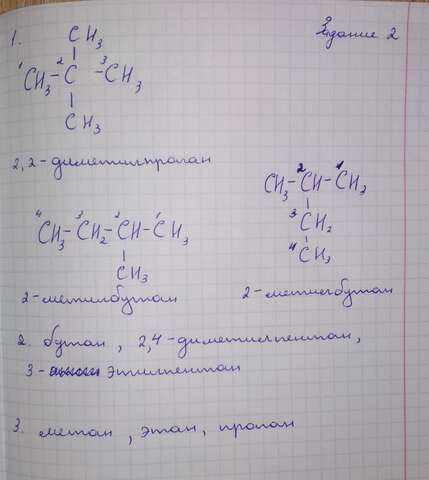 Задание 2
1.
CH3
1 2 3
CH3-C-CH3
CH3
2,2-диметилпропан
4 3 2 1
CH3-CH2-CH-CH3
CH3
2-метилбутан
2 1
CH3-CH-CH3
3 CH2
4 CH3
2-метилбутан
2. бутан, 2,4-диметилпентан,
3- этилпентан
3. метан, этан, пропан